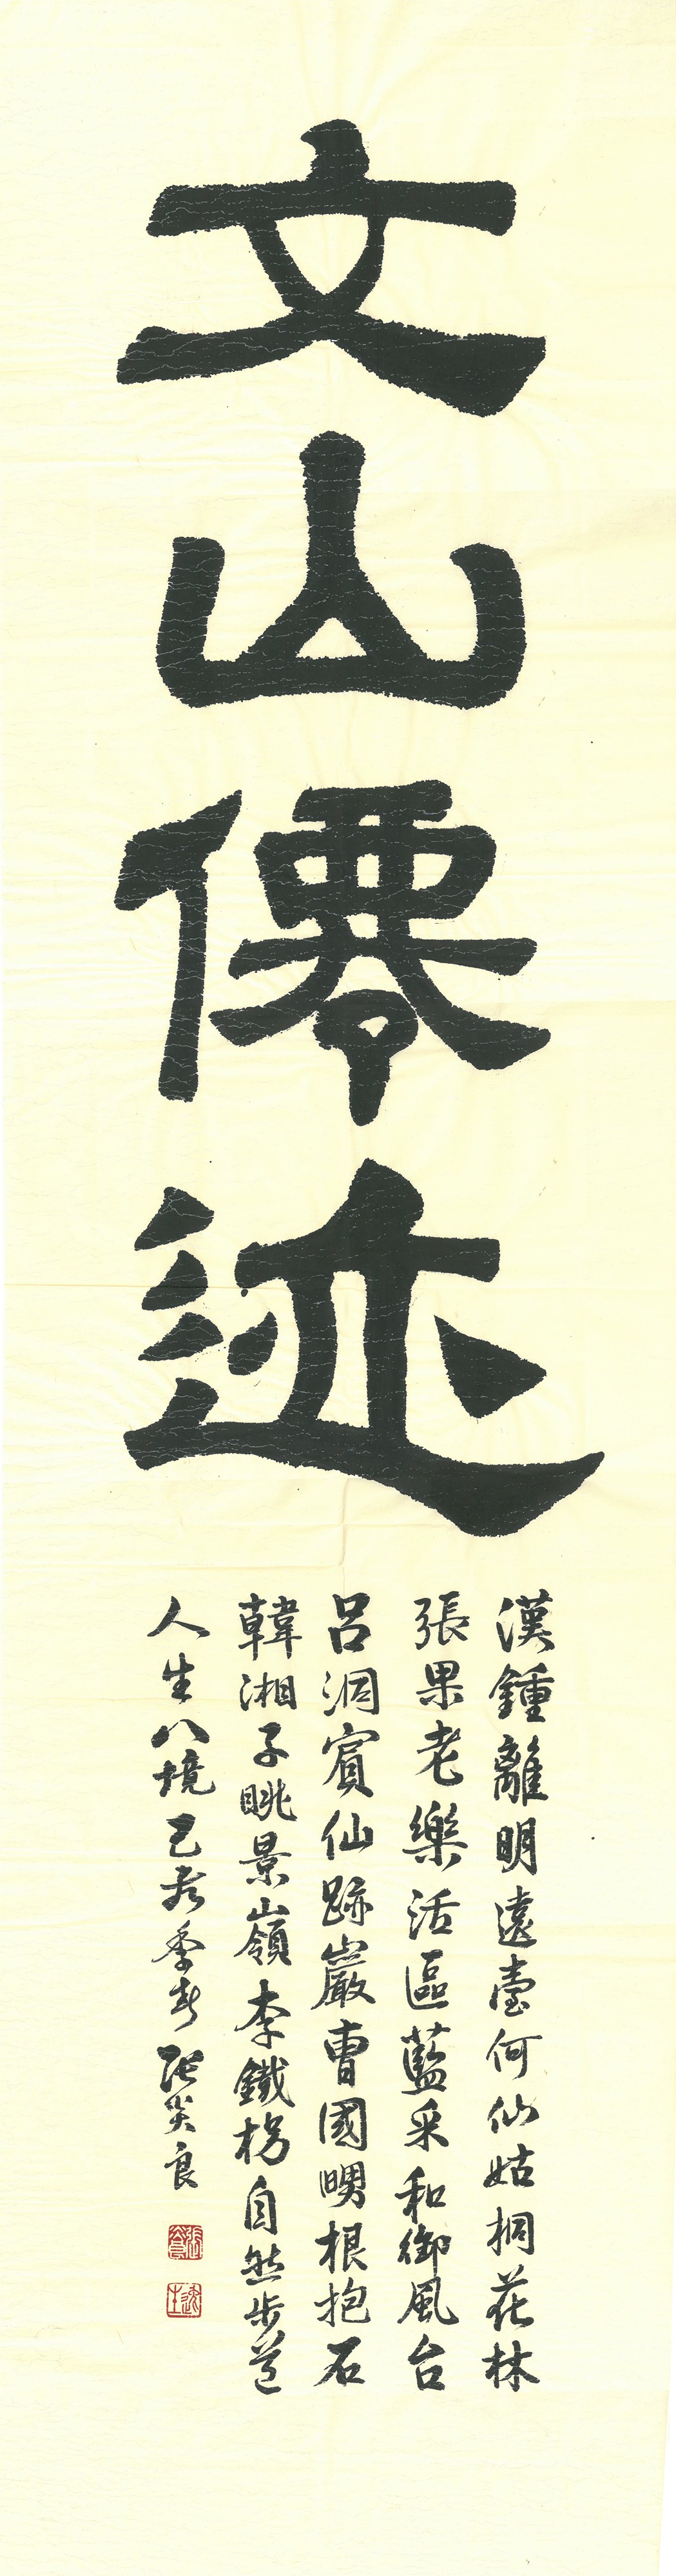 文山僊迹
漢鍾離明遠臺何仙姑桐花林
張果老樂活區藍采和御風台
呂洞賓仙跡巖曹國舅根抱石
韓湘子眺景嶺李鐵拐自然步道
人生八境己亥季春張炎良